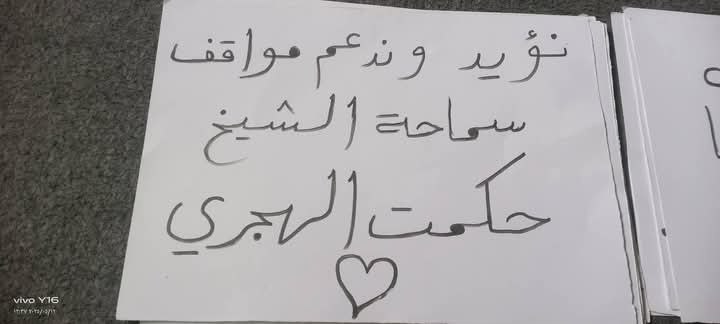 نؤيد وندعم مواقف
سماحة الشيخ
حكمت الهجري
vivo Y16